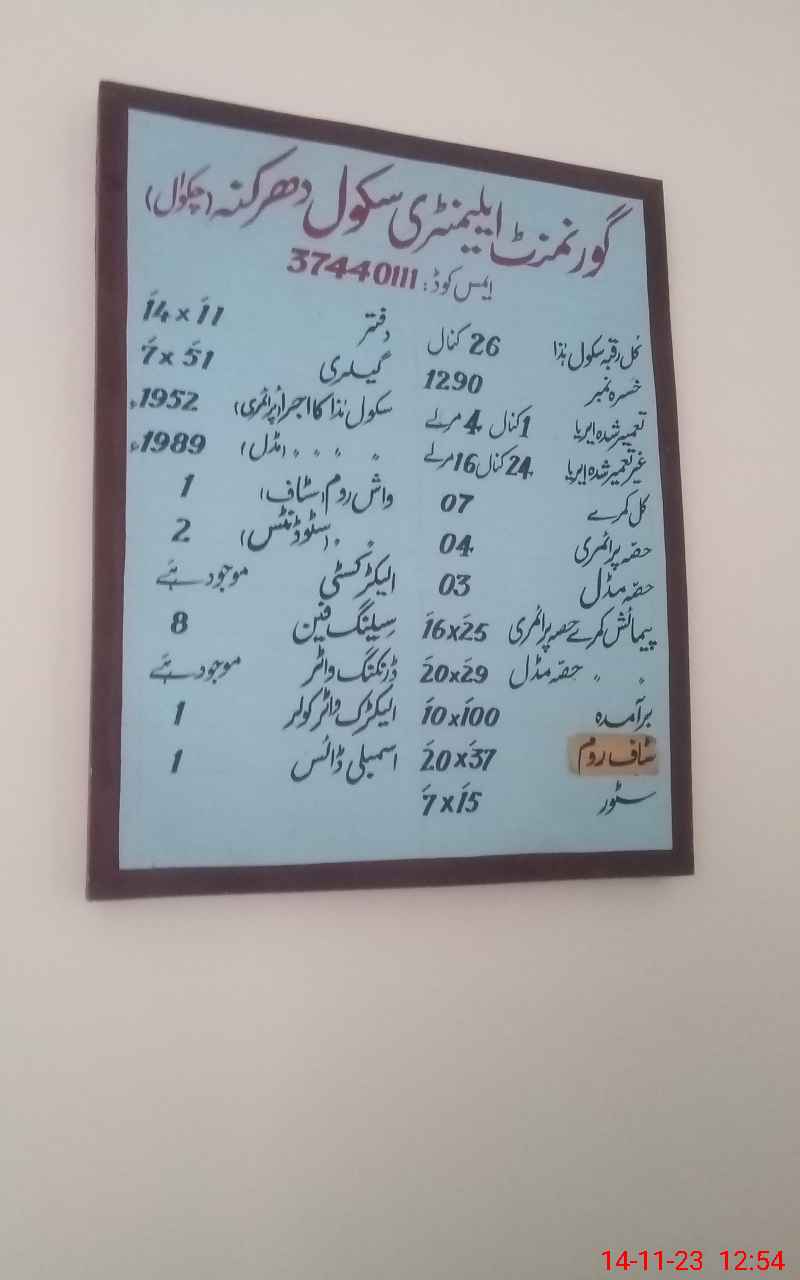 گورنمنٹ ایلیمنٹری سکول دھرکنہ (چکوال)
ایمس کوڈ: 37440111
کل رقبہ سکول ہٰذا 26 کنال
خسرہ نمبر 1290
تعمیر شدہ ایریا 1 کنال 4 مرلے
غیر تعمیر شدہ ایریا 24 کنال 16 مرلے
کل کمرے 07
حصہ پرائمری 04
حصہ مڈل 03
پیمائش کمرے حصہ پرائمری 16x25
" " حصہ مڈل 20x29
برآمدہ 10x100
سٹاف روم 20x37
سٹور 7x15
دفتر 14x11
گیلری 7x51
سکول ہٰذا کا اجرا (پرائمری) 1952ء
" " " " (مڈل) 1989ء
واش روم (سٹاف) 1
" " (سٹوڈنٹس) 2
الیکٹرکسٹی موجود ہے
سیلنگ فین 8
ڈرنکنگ واٹر موجود ہے
الیکٹرک واٹر کولر 1
اسمبلی ڈائس 1
14-11-23 12:54